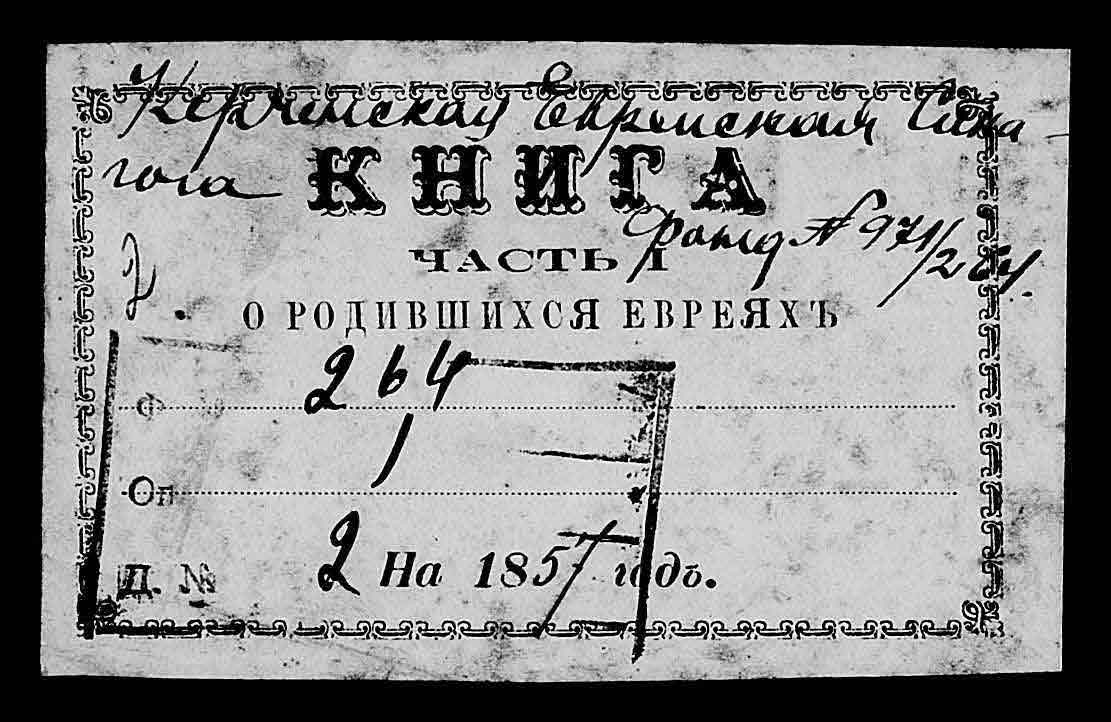 Керченская Еврейская Сина-
гога
КНИГА
Фонд № 971/2
ЧАСТЬ I
2.
О РОДИВШИХСЯ ЕВРЕЯХЪ
Ф 264
Оп 1
Д. № 2
На 1857 годъ.